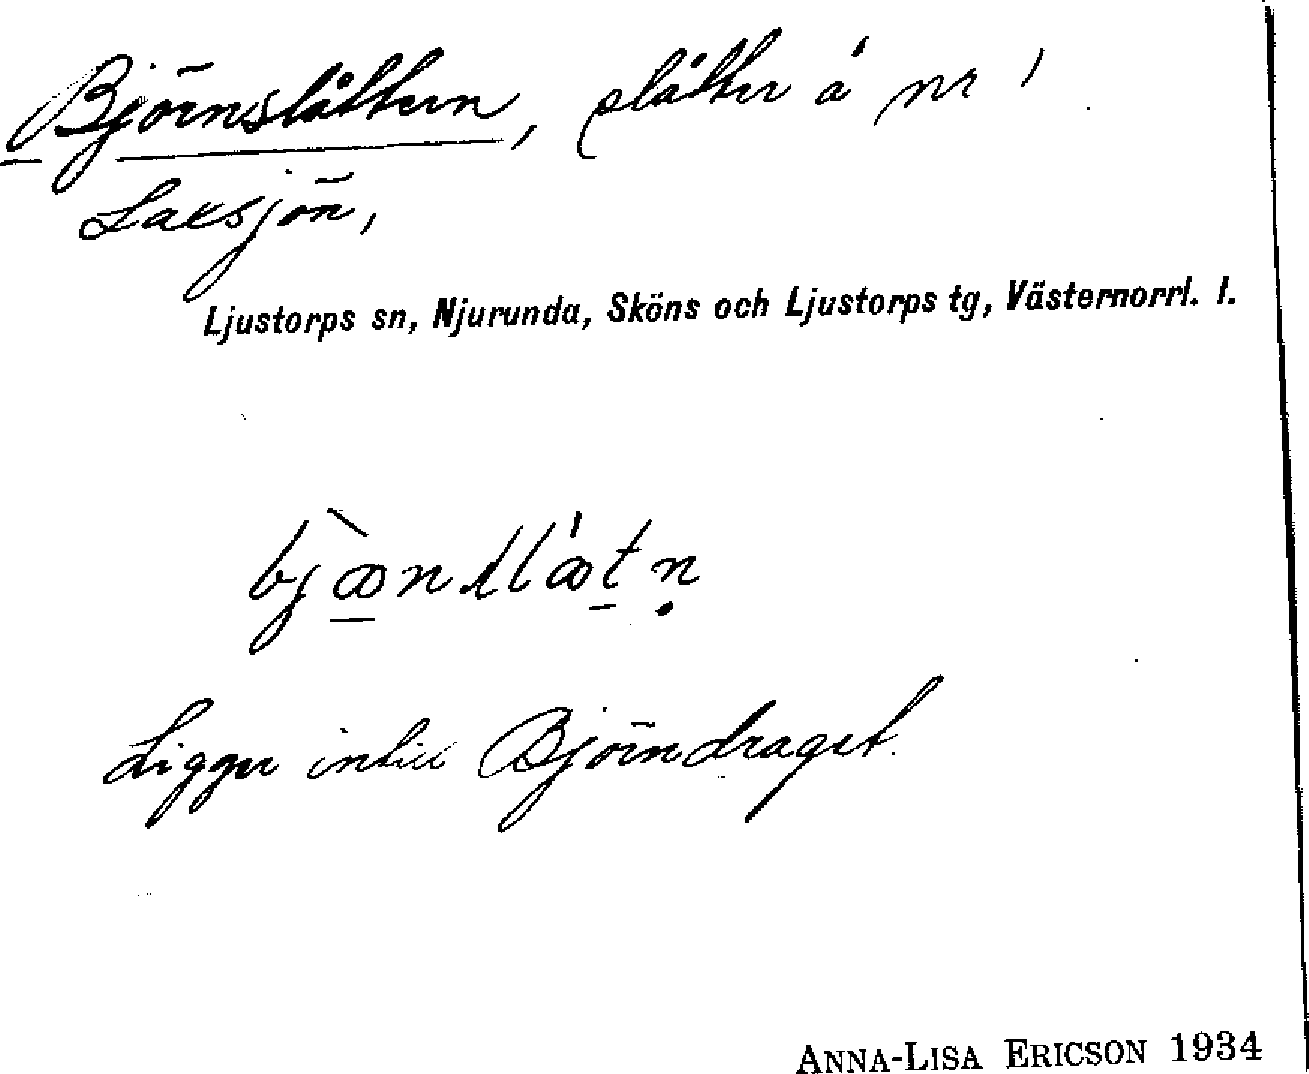 Björnslåttern, slåtter å nr 1
Laxsjön,
Ljustorps sn, Njurunda, Sköns och Ljustorps tg, Västernorrl. l.
Ligger intill Björndraget.
ANNA-LISA ERICSON 1934